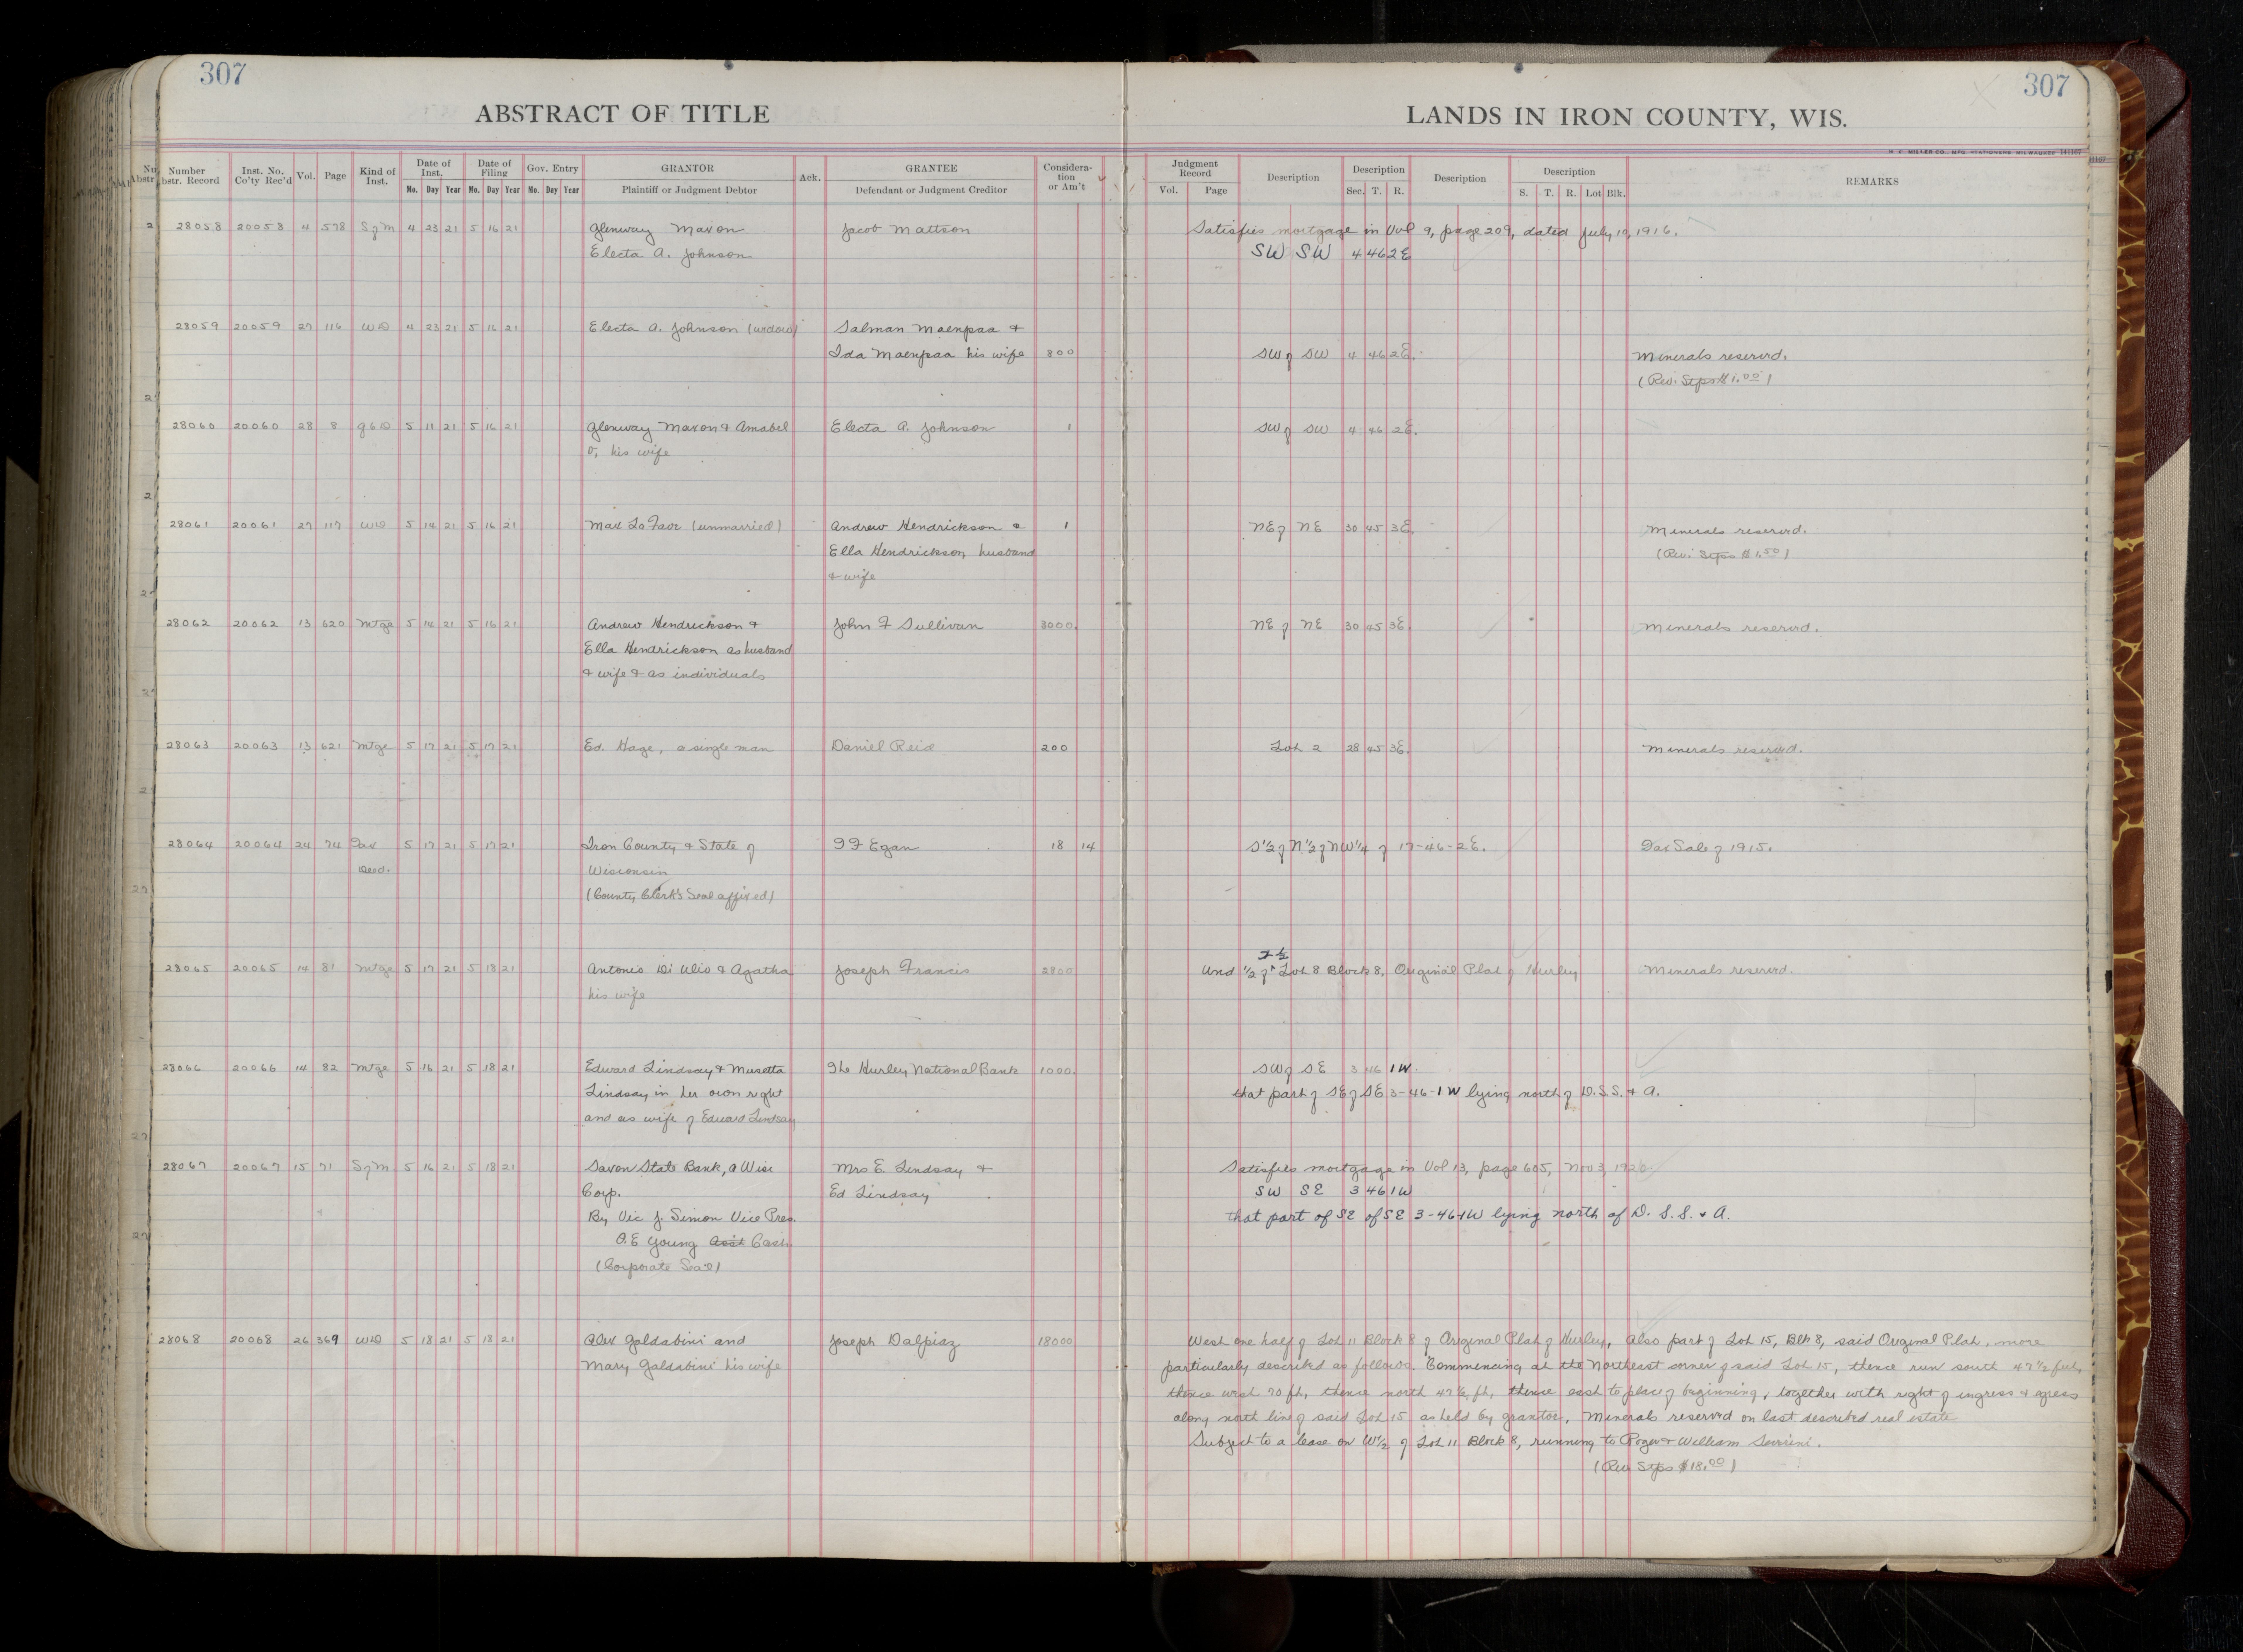 307
307
ABSTRACT OF TITLE
LANDS IN IRON COUNTY, WIS.
H. C. MILLER CO., MFG. STATIONERS, MILWAUKEE 141167
Number Abstr. Record | Inst. No. Co'ty Rec'd | Vol. | Page | Kind of Inst. | Date of Inst. Mo. Day Year | Date of Filing Mo. Day Year | Gov. Entry Mo. Day Year | GRANTOR Plaintiff or Judgment Debtor | Ack. | GRANTEE Defendant or Judgment Creditor | Considera- tion or Am't | Judgment Record Vol. Page | Description | Description Sec. T. R. | Description | Description S. T. R. Lot Blk. | REMARKS
28058 20058 4 578 S of M 4 23 21 5 16 21 Glenway Maxon Jacob Mattson Satisfies mortgage in Vol 9, page 209, dated July 10, 1916.
Electa A. Johnson SW SW 4 46 2E
28059 20059 27 116 WD 4 23 21 5 16 21 Electa A. Johnson (widow) Salman Maenpaa &
Ida Maenpaa his wife 800 SW of SW 4 46 2E. Minerals reservd.
(Rev. Stps $1.00)
28060 20060 28 8 QCD 5 11 21 5 16 21 Glenway Maxon & Amabel Electa A. Johnson 1 SW of SW 4 46 2E.
O, his wife
28061 20061 27 117 WD 5 14 21 5 16 21 Max La Fave (unmarried) Andrew Hendrickson & 1 NE of NE 30 45 3E. Minerals reservd.
Ella Hendrickson, husband (Rev. Stps $1.50)
& wife
28062 20062 13 620 Mtge 5 14 21 5 16 21 Andrew Hendrickson & John F Sullivan 3000. NE of NE 30 45 3E. Minerals reservd.
Ella Hendrickson as husband
& wife & as individuals
28063 20063 13 621 Mtge 5 17 21 5 17 21 Ed. Hage, a single man Daniel Reid 200 Lot 2 28 45 3E. Minerals reservd.
28064 20064 24 74 Tax 5 17 21 5 17 21 Iron County & State of F F Egan 18 14 S 1/2 of N 1/2 of NW 1/4 of 17-46-2E. Tax Sale of 1915.
Deed. Wisconsin
(County Clerk's Seal affixed)
28065 20065 14 81 Mtge 5 17 21 5 18 21 Antonio Di Ulio & Agatha Joseph Francis 2800 Und 1/2 of Lot 8 Block 8, Original Plat of Hurley Minerals reservd.
his wife
28066 20066 14 82 Mtge 5 16 21 5 18 21 Edward Lindsay & Musetta The Hurley National Bank 1000. SW of SE 3 46 1W.
Lindsay in her own right that part of SE of SE 3-46-1W lying north of D.S.S. & A.
and as wife of Edward Lindsay
28067 20067 15 71 S of M 5 16 21 5 18 21 Saxon State Bank, a Wisc Mrs E. Lindsay & Satisfies mortgage in Vol 13, page 605, Nov 3, 1920.
Corp. Ed Lindsay SW SE 3 46 1W
By Vic J. Simon Vice Pres. that part of SE of SE 3-46-1W lying north of D. S. S. & A.
A.E Young Asst Cash.
(Corporate Seal)
28068 20068 26 369 WD 5 18 21 5 18 21 Alex Galdabini and Joseph Dalpiaz 18000 West one half of Lot 11 Block 8 of Original Plat of Hurley, Also part of Lot 15, Blk 8, said Original Plat, more
Mary Galdabini his wife particularly described as follows. Commencing at the Northeast corner of said Lot 15, thence run south 47 1/2 feet,
thence west 70 ft, thence north 47 1/2 ft, thence east to place of beginning, together with right of ingress & egress
along north line of said Lot 15 as held by grantor, Minerals reservd on last described real estate
Subject to a lease on W 1/2 of Lot 11 Block 8, running to Roger & William
(Rev Stps $18.00)